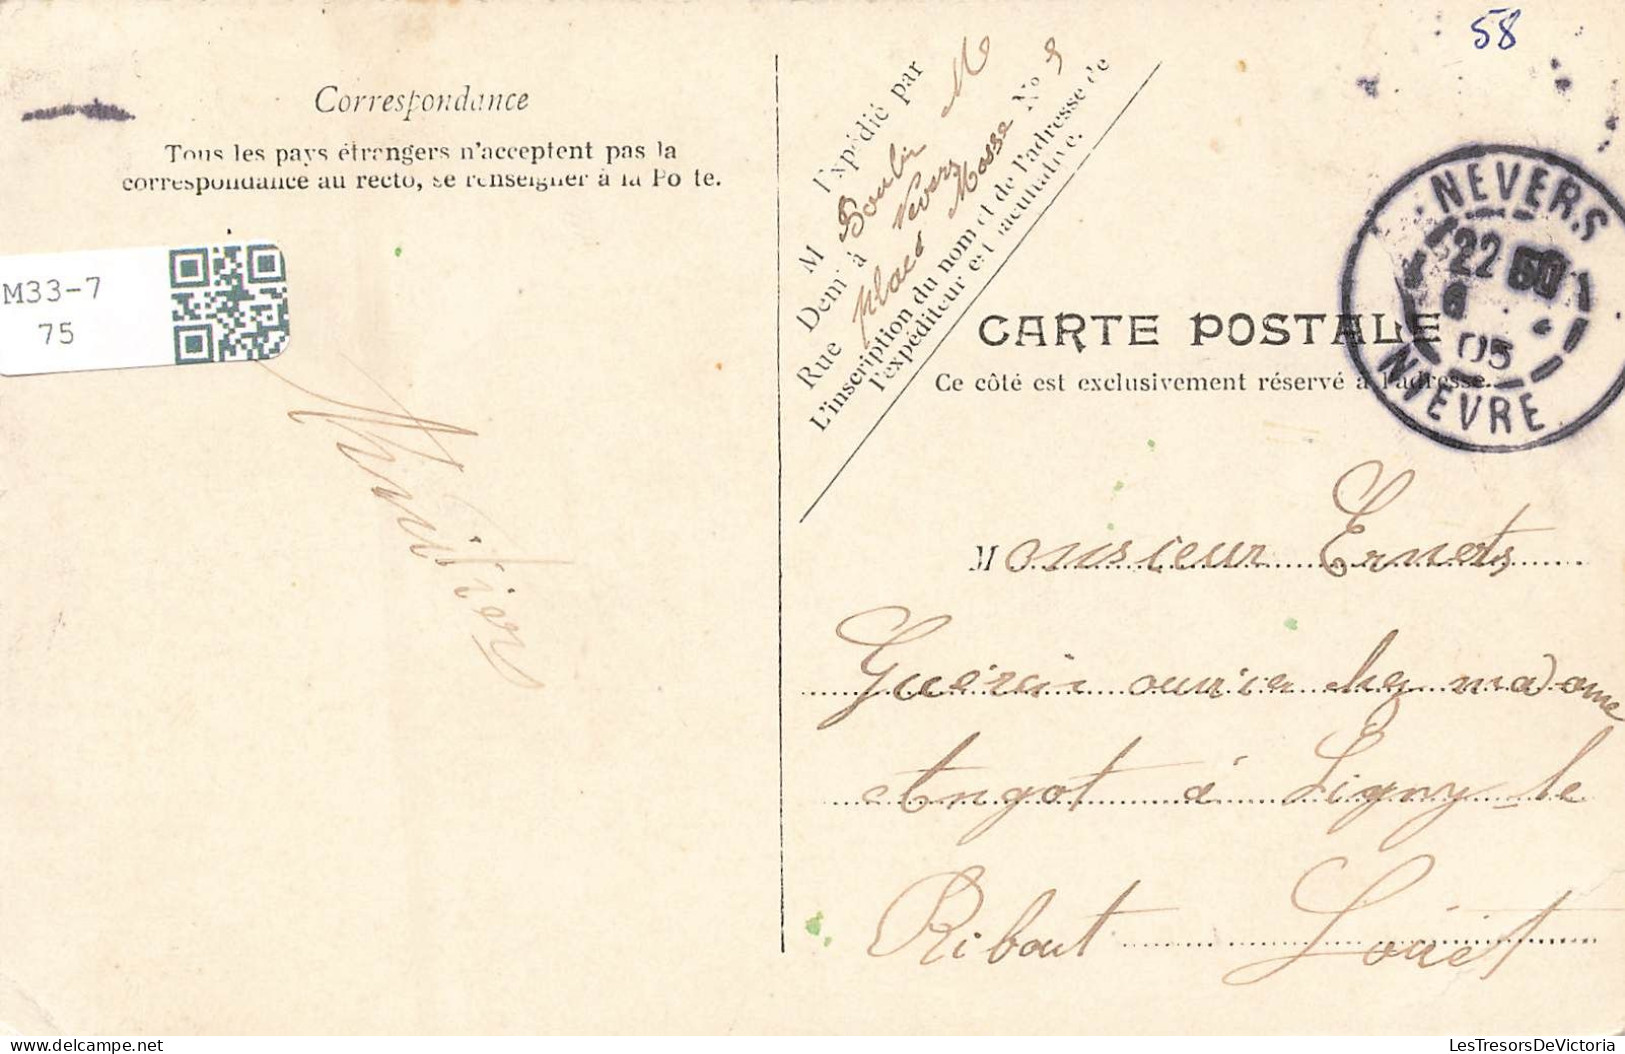 58
Correspondance
Tous les pays étrangers n'acceptent pas la
correspondance au recto, se renseigner à la Poste.
M33-7
75
Expédié par
M Boulin M
Demt à Nevers
Rue place Mosse No 9
L'inscription du nom et de l'adresse de
l'expéditeur est facultative.
NEVERS
22 50
6
05
NIEVRE
CARTE POSTALE
Ce côté est exclusivement réservé à l'adresse.
Monsieur Ernets
Guerin ouvrier chez madame
Angot à Ligny-le
Ribout Loiret
LesTresorsDeVictoria